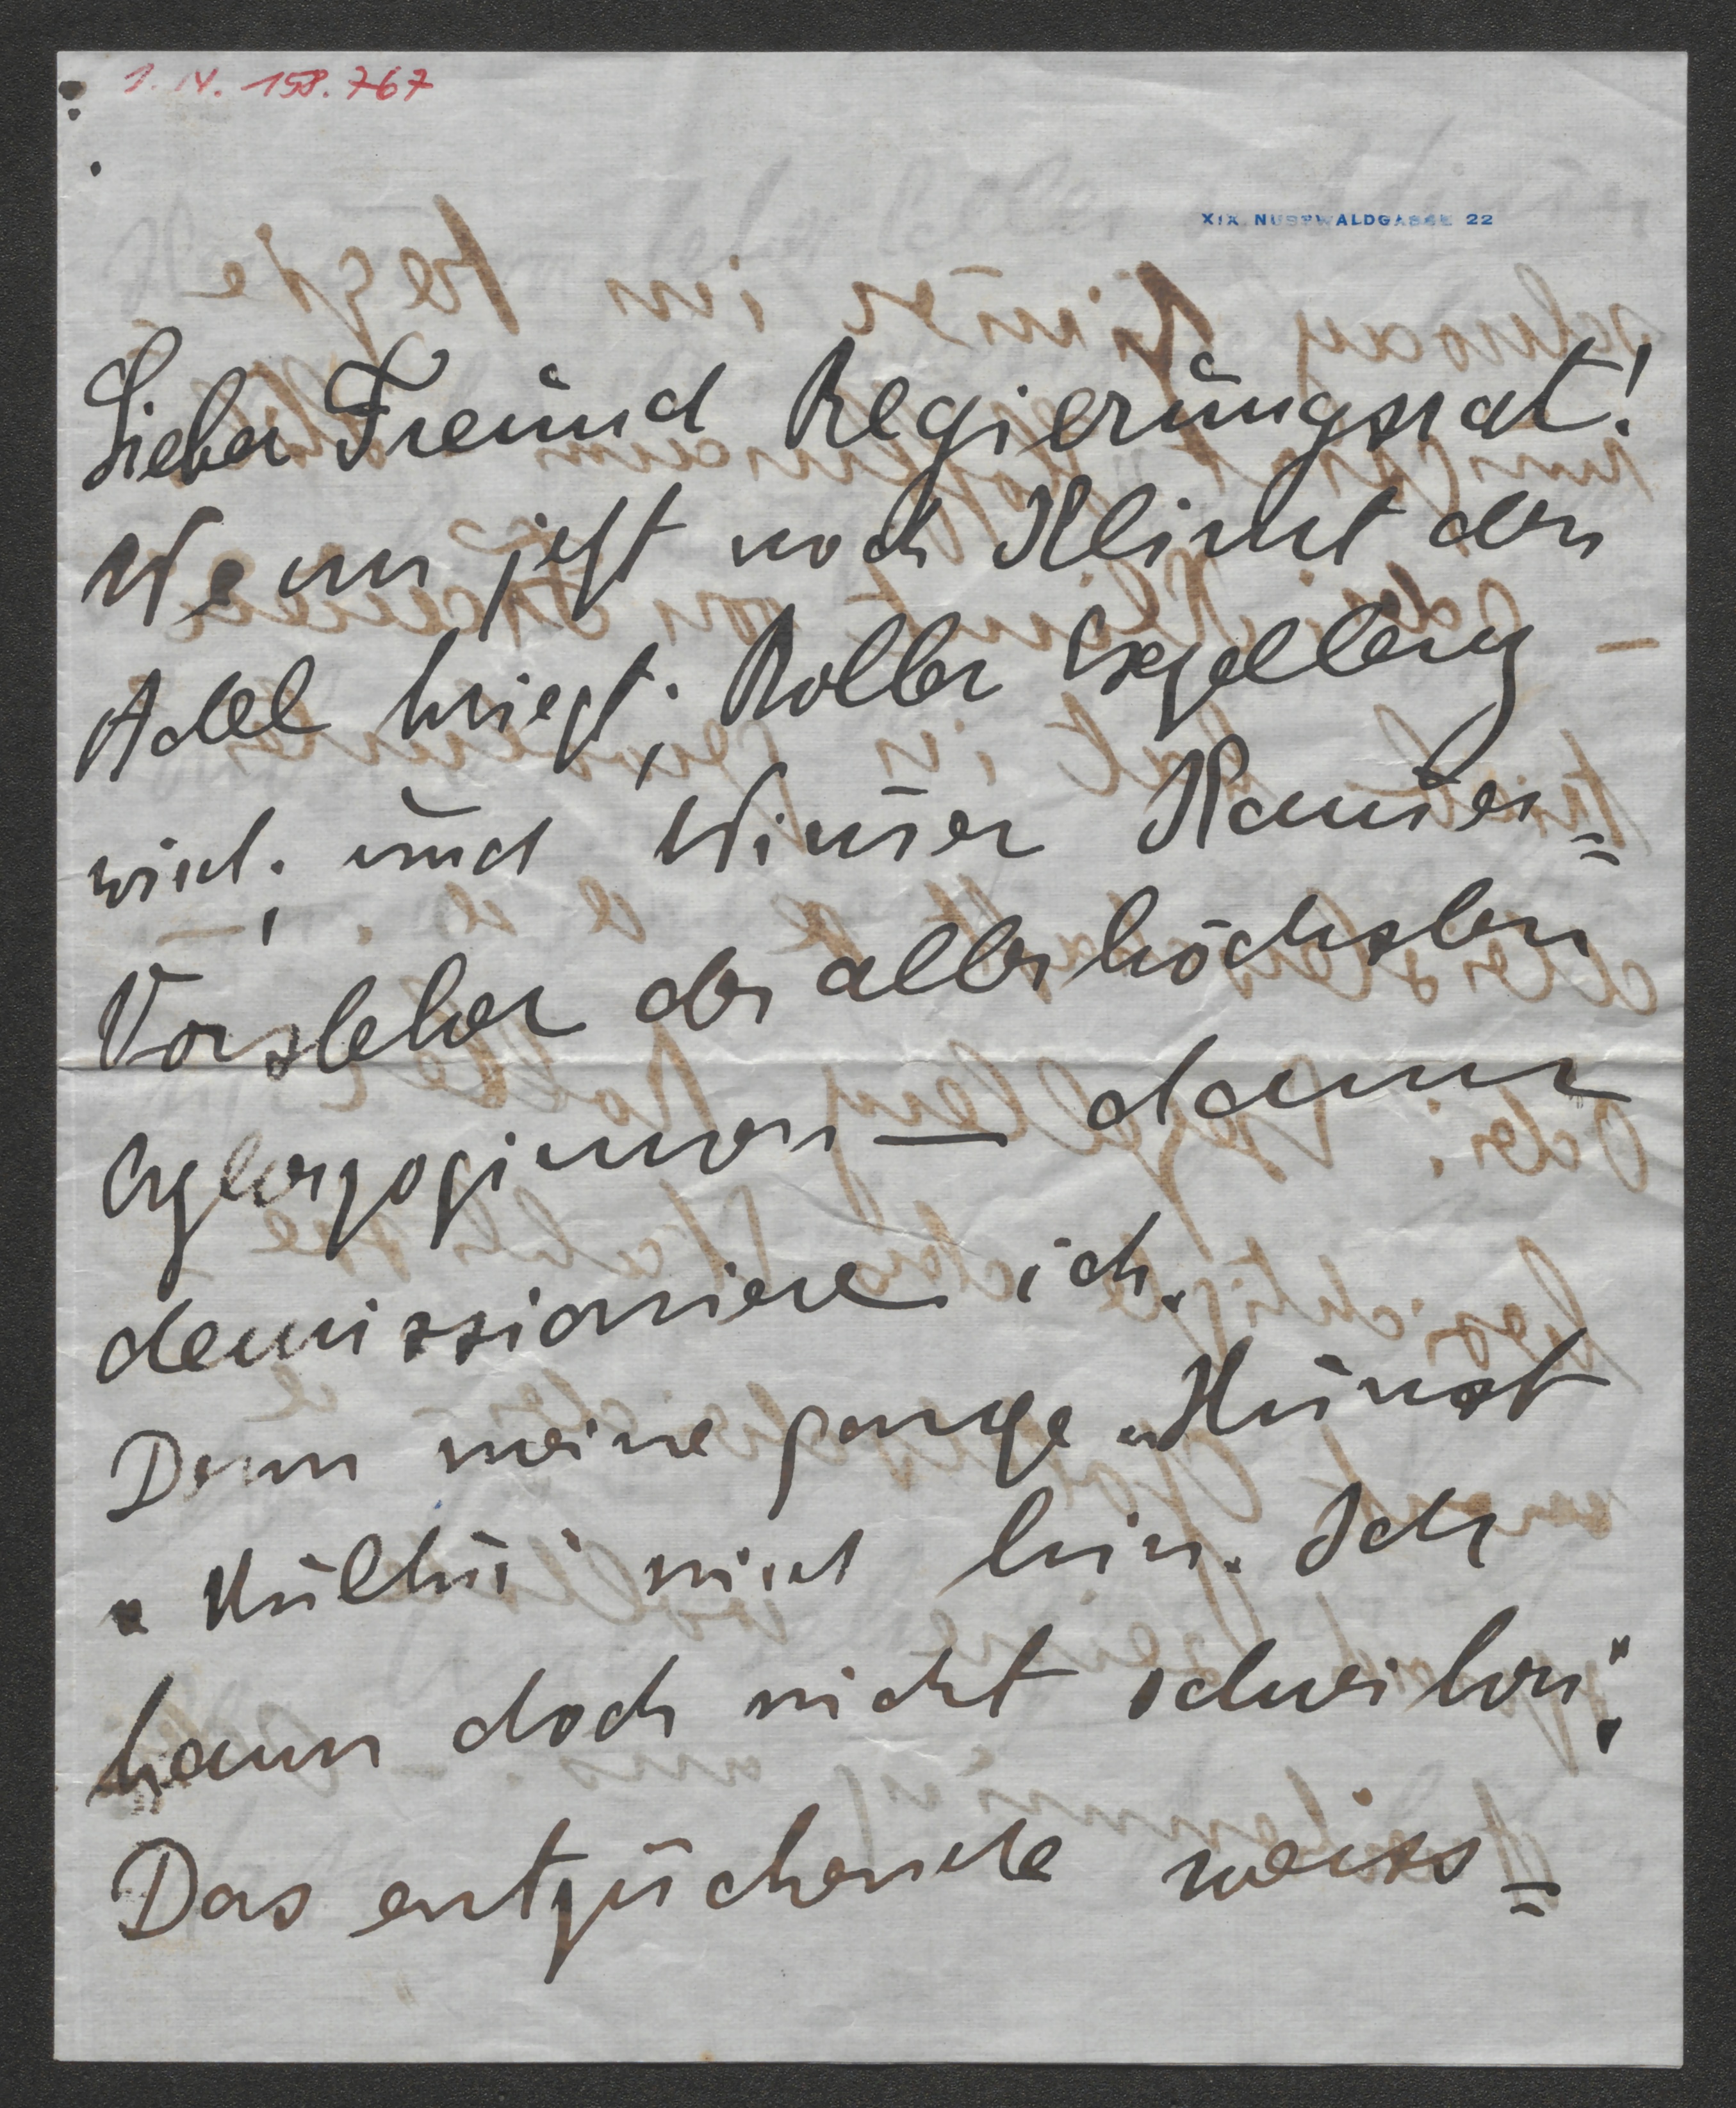 I. N. 158.767
XIX. NUSSWALDGASSE 22
Lieber Freund Regierungsrat!
Wenn jetzt noch Klimt den
Adel kriegt; Roller Exzellenz
wird; und Wimmer Kammer=
Vorsteher der allerhöchsten
Erzherzoginnen — dann
demissioniere ich.
Denn meine ganze „Kunst
„Kultur" wird hin. Ich
kann doch nicht schreiben":
Das entzückende weiss=